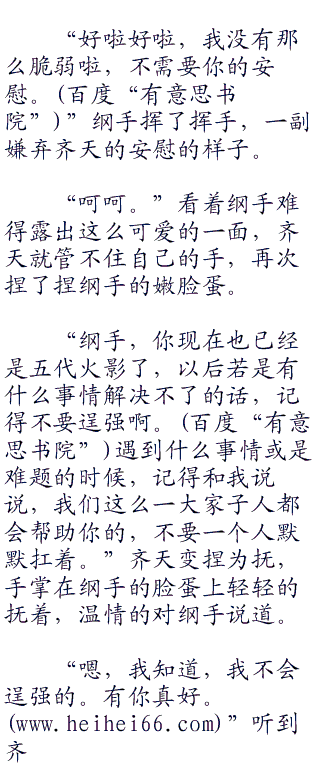 “好啦好啦，我没有那
么脆弱啦，不需要你的安
慰。(百度“有意思书
院”)”纲手挥了挥手，一副
嫌弃齐天的安慰的样子。
“呵呵。”看着纲手难
得露出这么可爱的一面，齐
天就管不住自己的手，再次
捏了捏纲手的嫩脸蛋。
“纲手，你现在也已经
是五代火影了，以后若是有
什么事情解决不了的话，记
得不要逞强啊。(百度“有意
思书院”)遇到什么事情或是
难题的时候，记得和我说
说，我们这么一大家子人都
会帮助你的，不要一个人默
默扛着。”齐天变捏为抚，
手掌在纲手的脸蛋上轻轻的
抚着，温情的对纲手说道。
“嗯，我知道，我不会
逞强的。有你真好。
(www.heihei66.com)”听到
齐